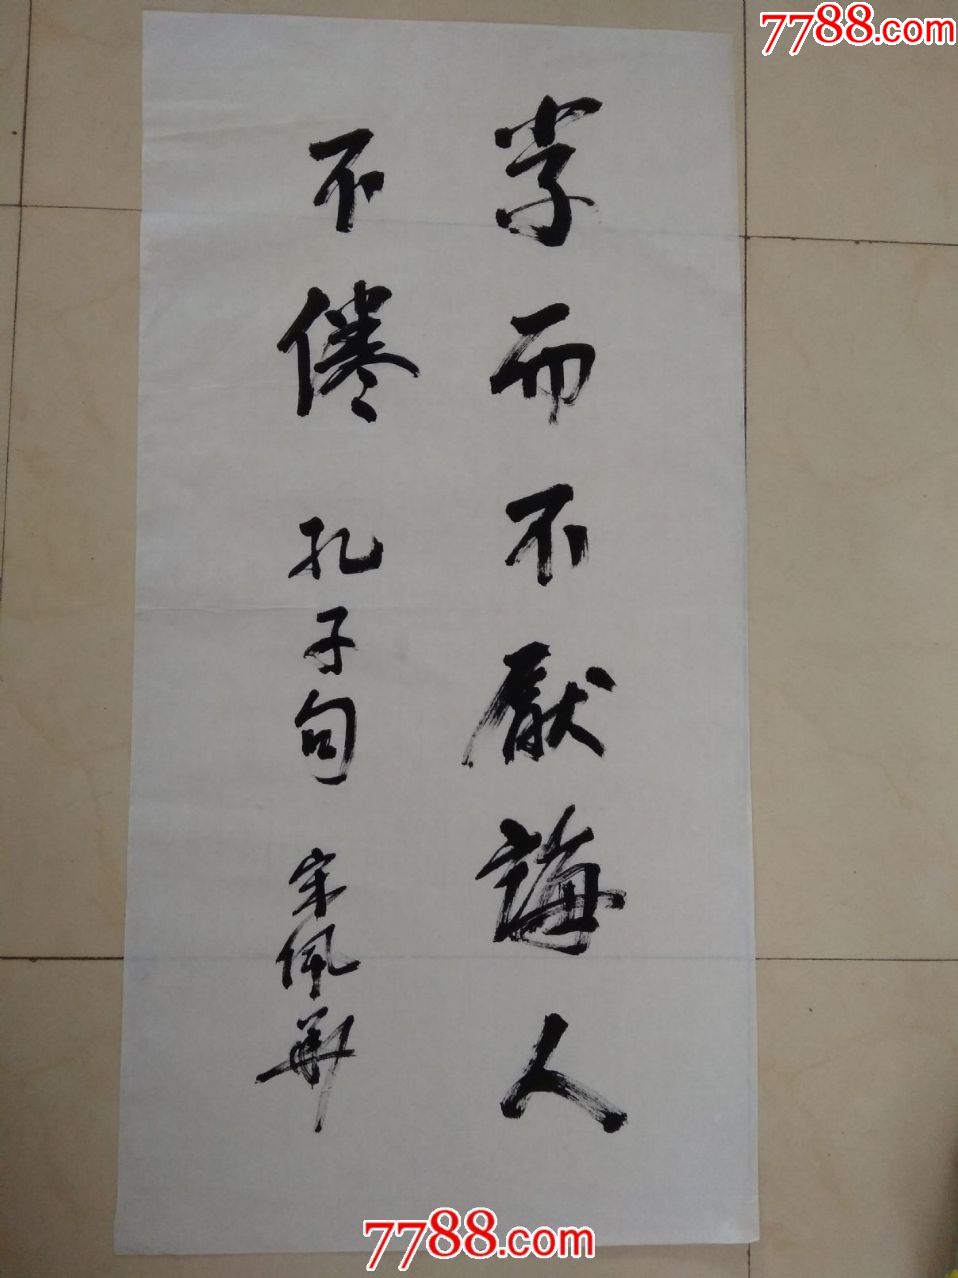 7788.com
学而不厭誨人
不倦 孔子句 宋佩華
7788.com